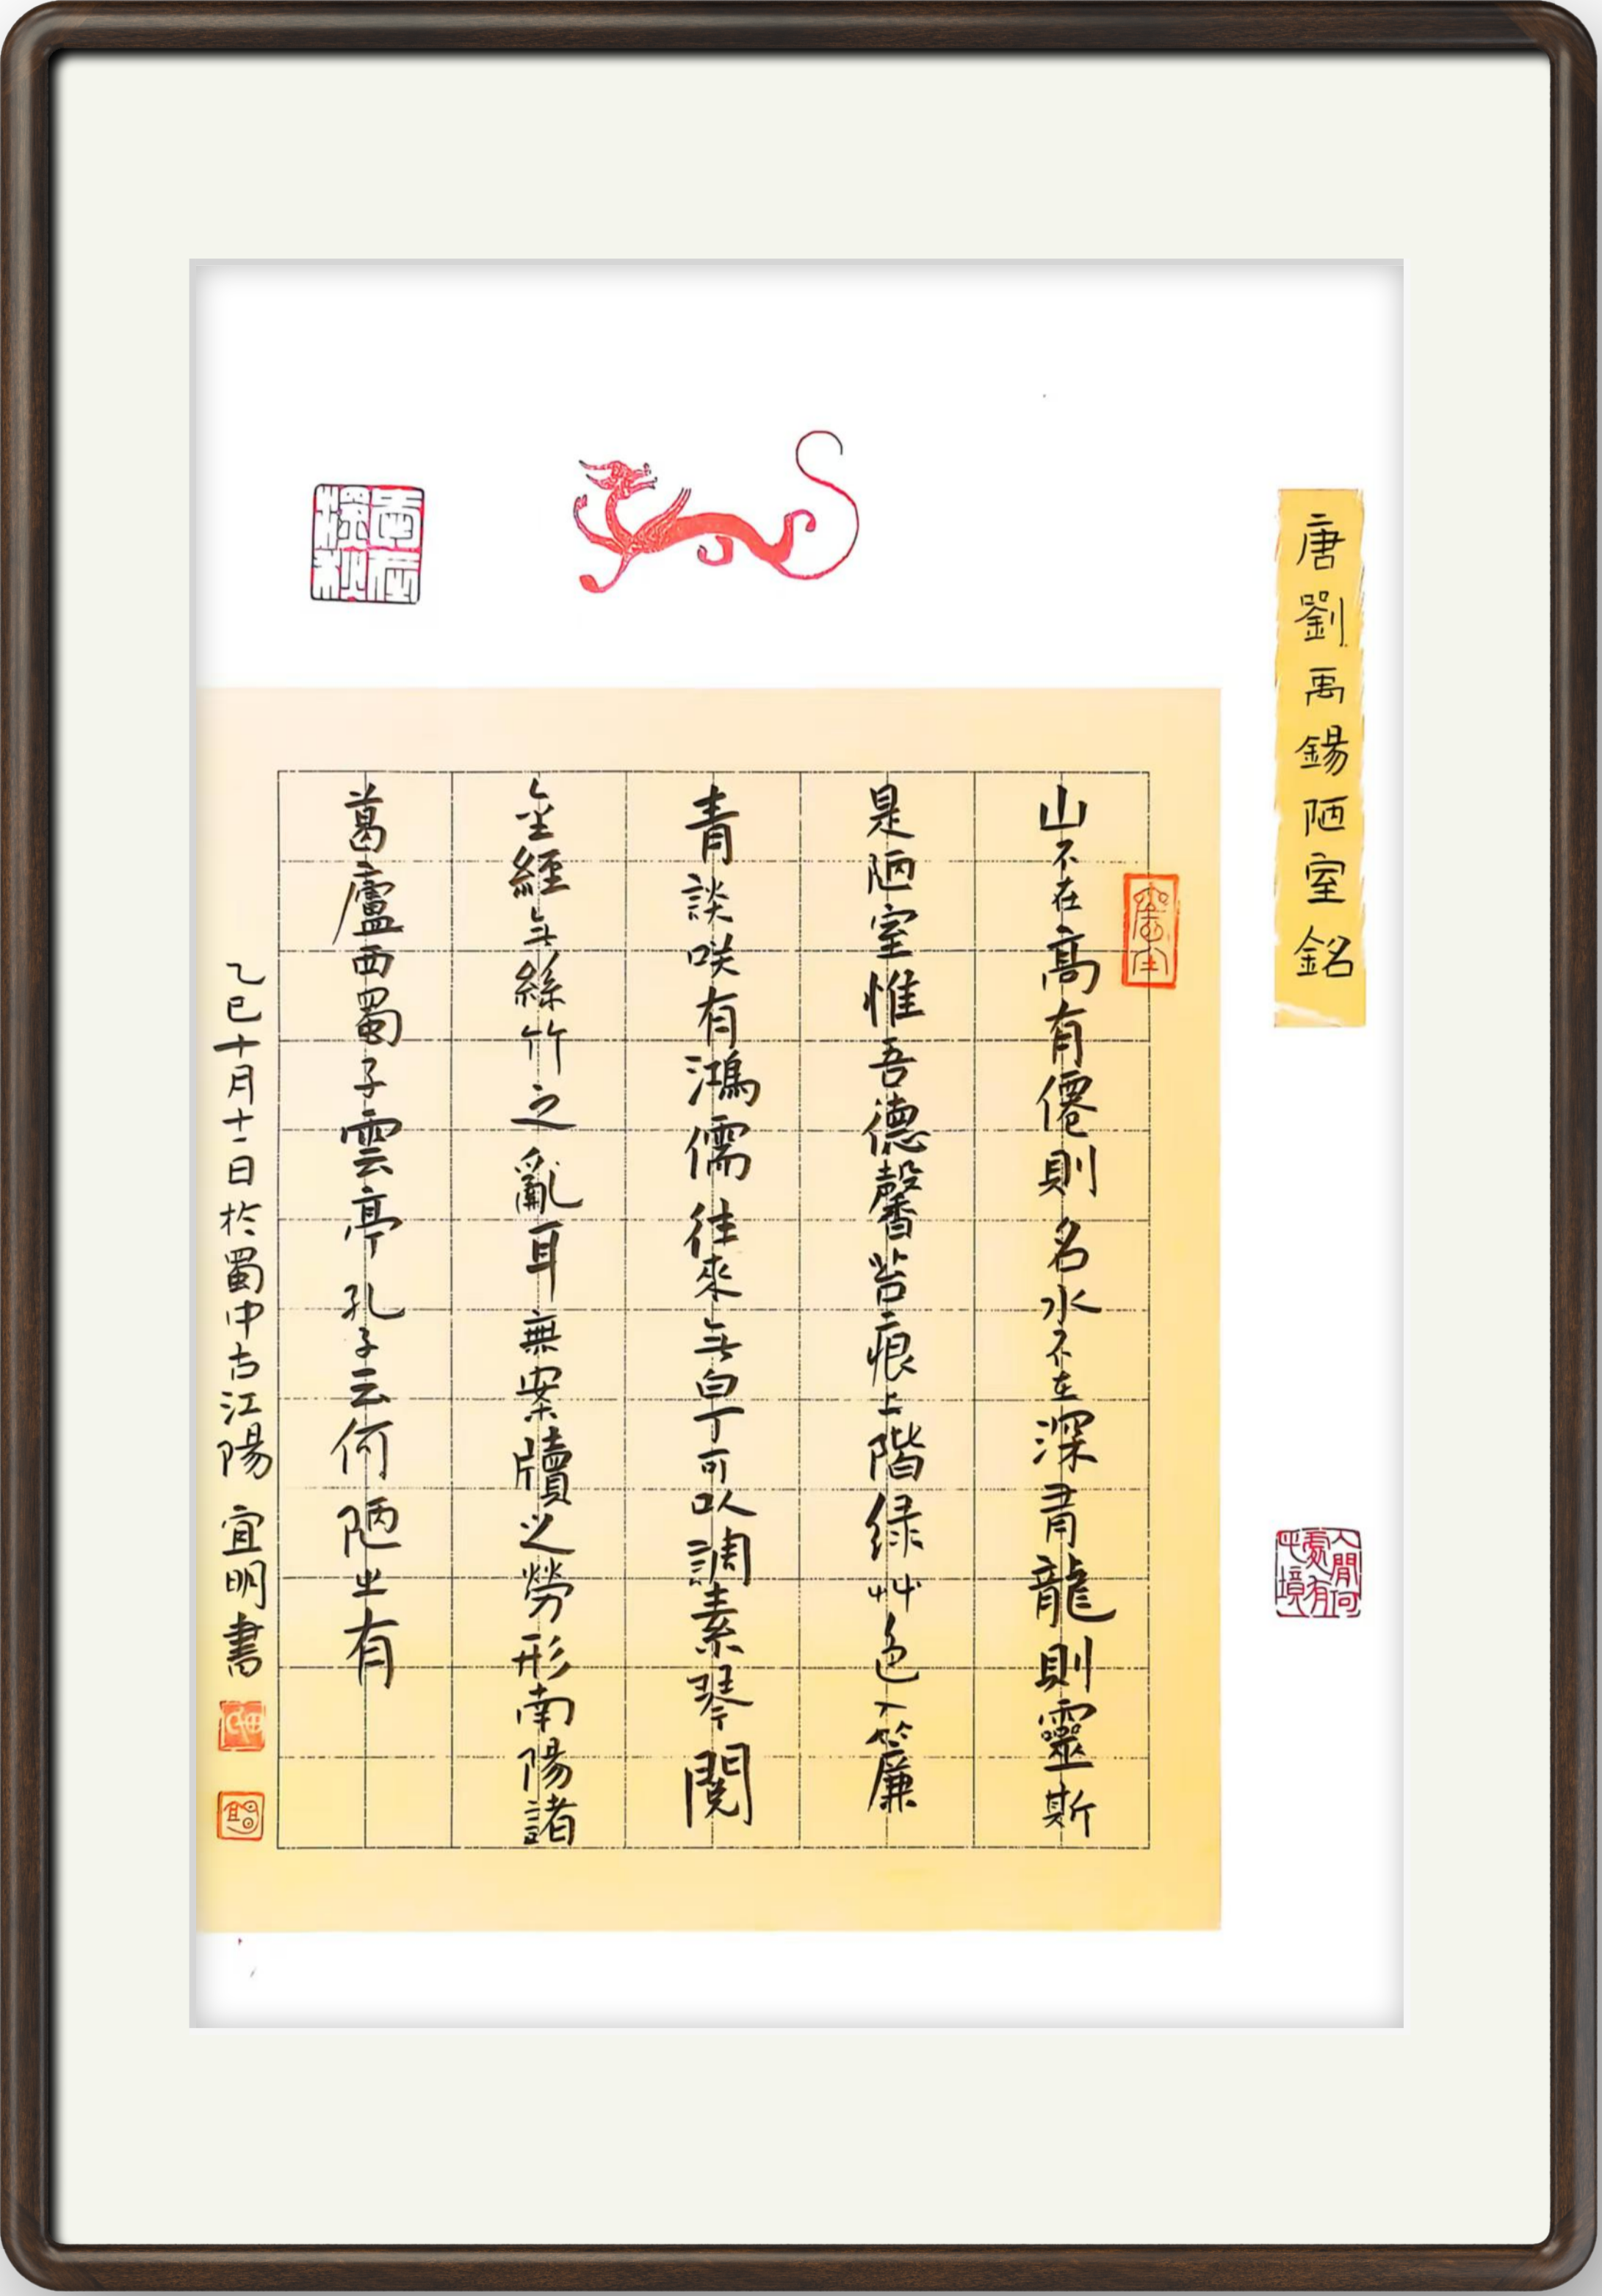 唐劉禹錫陋室銘
山不在高有僊則名水不在深有龍則靈斯
是陋室惟吾德馨苔痕上階緑艸色入簾
青談咲有鴻儒往來无白丁可以調素琴閱
金經无絲竹之亂耳無案牘之勞形南陽諸
葛廬西蜀子雲亭孔子云何陋㞢有
乙巳十月十一日於蜀中古江陽 宜明書
人閒何處有此境